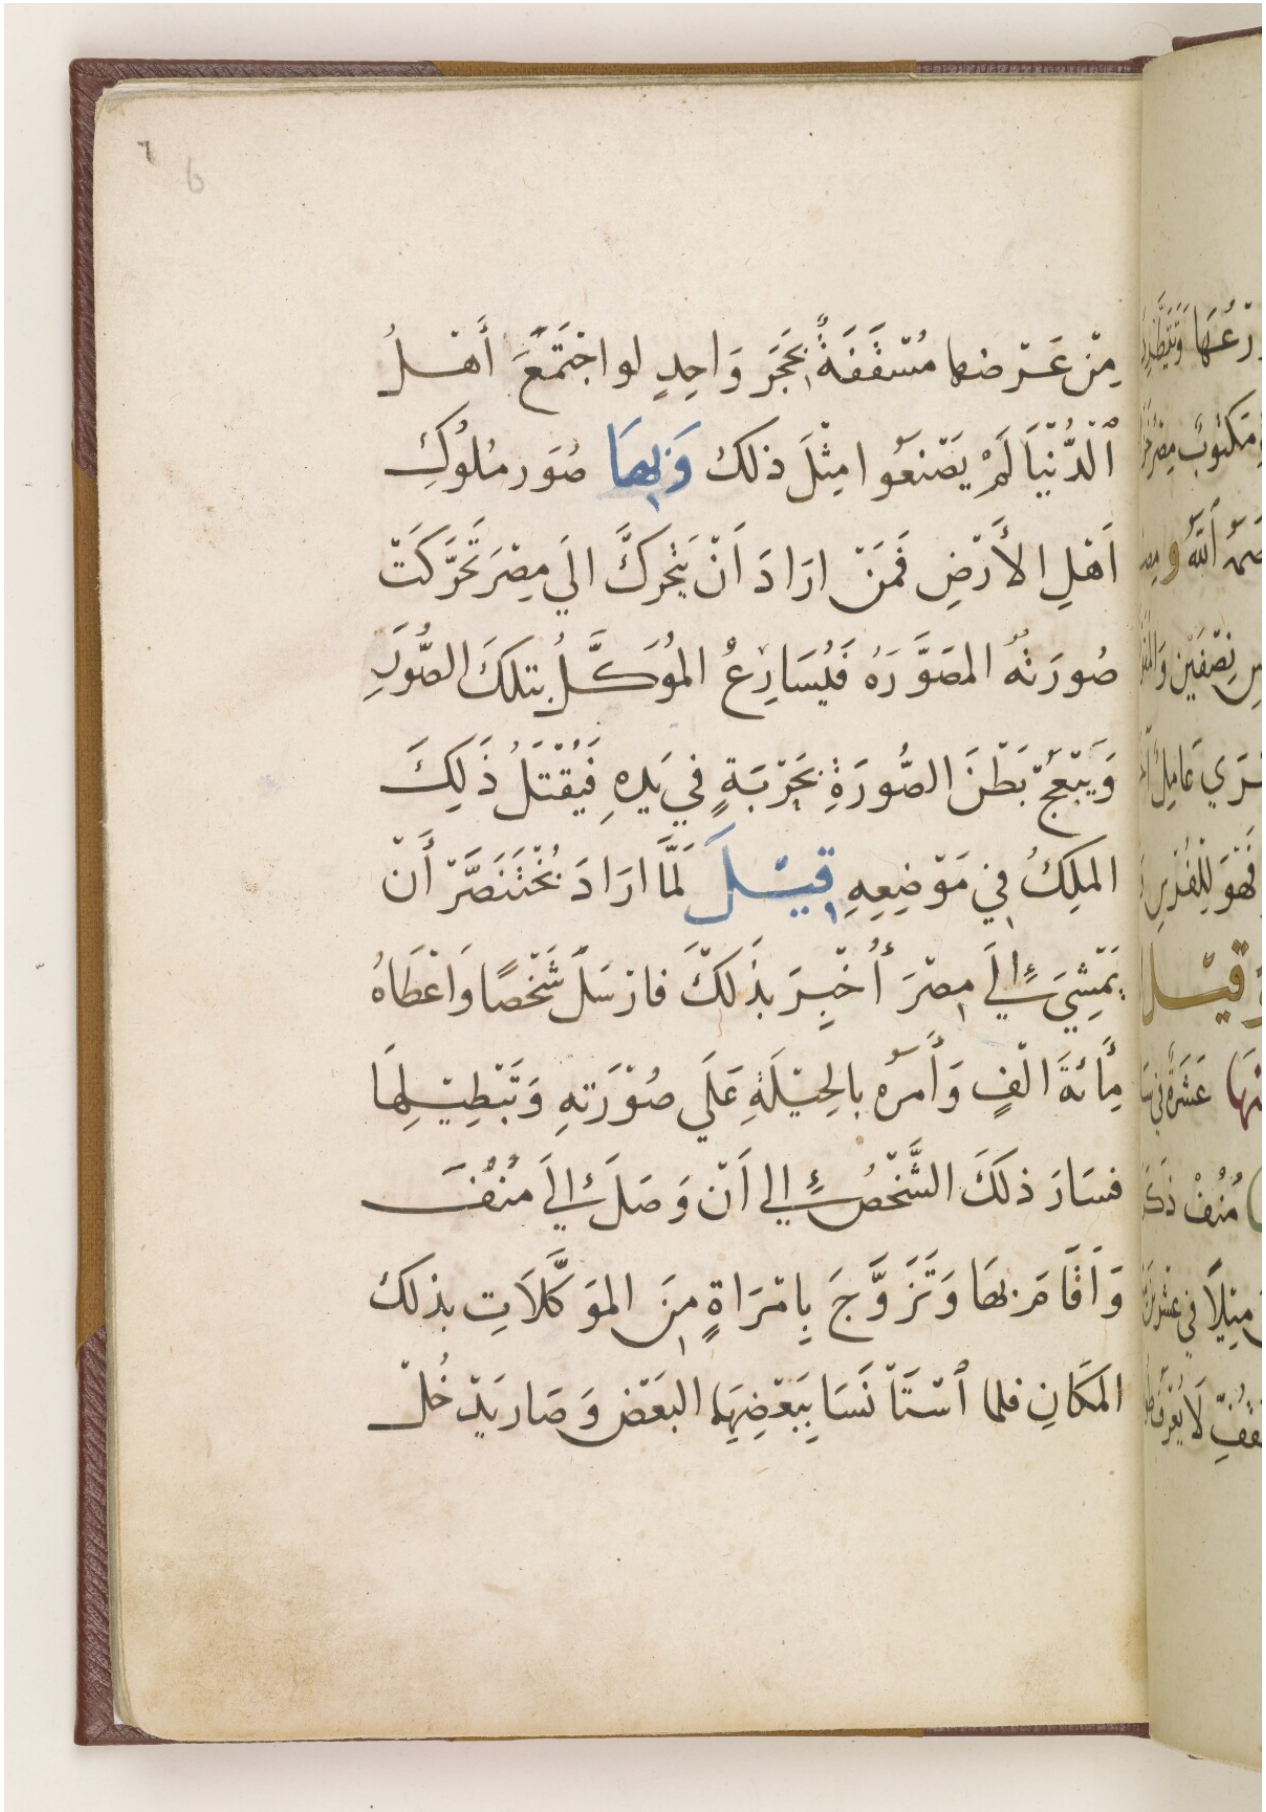 ٦
6
مِنْ عَرْضها مُسْقَفَةٌ بِحَجَرٍ وَاحِدٍ لو اجْتَمَعَ أَهْلُ
ٱلْدُّنْيَا لَمْ يَصْنَعُوا مِثْلَ ذلك وَبِهَا صُوَر مُلُوكِ
اَهْلِ الأَرْضِ فَمَنْ ارَادَ اَنْ يَتَحرَكَّ الَي مِصْرَ تَحَرَّكَتْ
صُورَتُهُ المصَوَّرَهُ فَيُسَارِعُ المُوَكَّلُ بتلكَ الصُّورَةِ
وَيَبْعَجُ بَطْنَ الصُّورَةِ بِحَرْبَةٍ في يَدِهِ فَيُقْتَلُ ذَلِكَ
الملِكُ فِي مَوْضِعِهِ قِيْلَ لَمَّا ارَادَ بُخْتَنَصَّرْ أَنْ
يَمْشِيَ إِلَي مِصْرَ أُخْبِرَ بذَلكَ فَارْسَلَ شَخْصًا وَاعْطَاهُ
مِأَئةَ الْفٍ وَأَمَرَه بالحِيْلَةِ عَلَي صُوْرَتهِ وَتَبْطِيْلِهَا
فسَارَ ذلَكَ الشَّخْصُ إِلي اَنْ وَصَلَ إِلَي مُنُفَ
وَاَقَامَ بهَا وَتَزَوَّجَ بِامْرَاةٍ مِنَ الموَكَّلاَتِ بذلك
المَكَانِ فلما ٱسْتَاْنَسَا بِبَعْضِهَا البَعْض وَصَار يَدْخُلْ